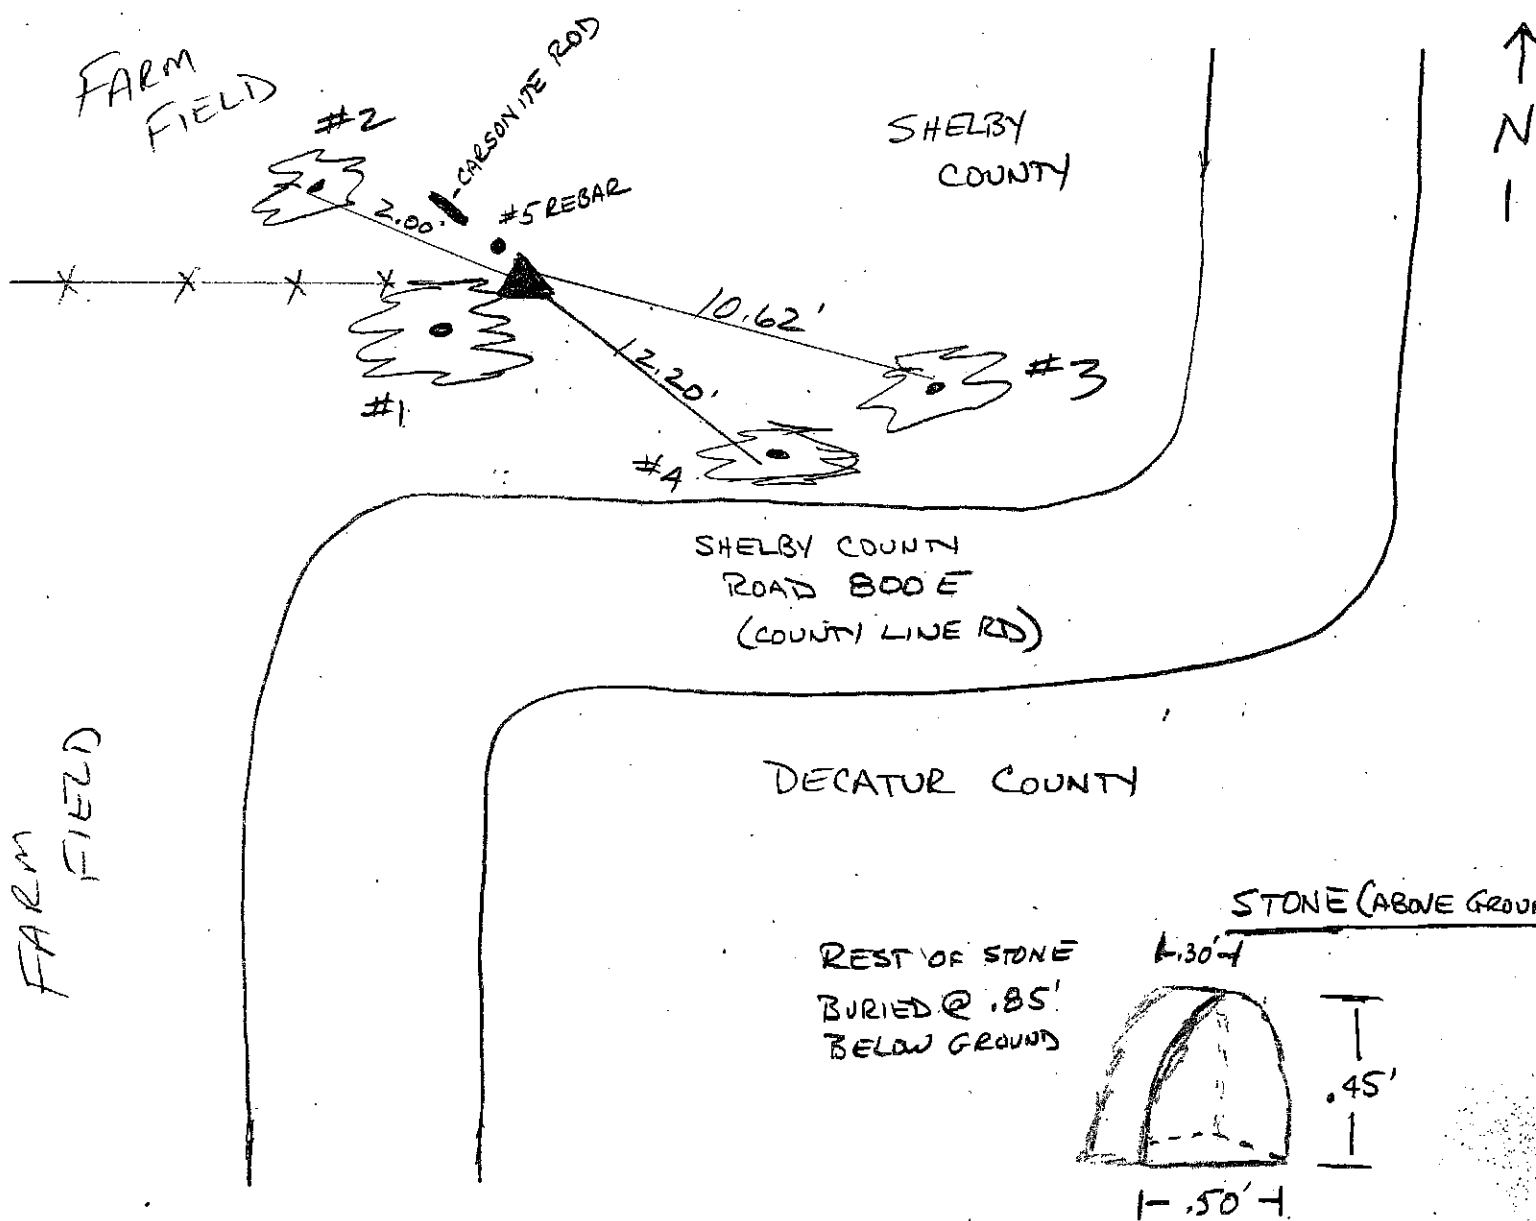 FARM
FIELD
#2
CARSONITE ROD
#5 REBAR
2.00'
SHELBY
COUNTY
N
10.62'
12.20'
#1
#3
#4
SHELBY COUNTY
ROAD 800 E
(COUNTY LINE RD)
FARM
FIELD
DECATUR COUNTY
STONE (ABOVE GROUN
REST OF STONE
BURIED @ .85'
BELOW GROUND
.30'
.45'
.50'